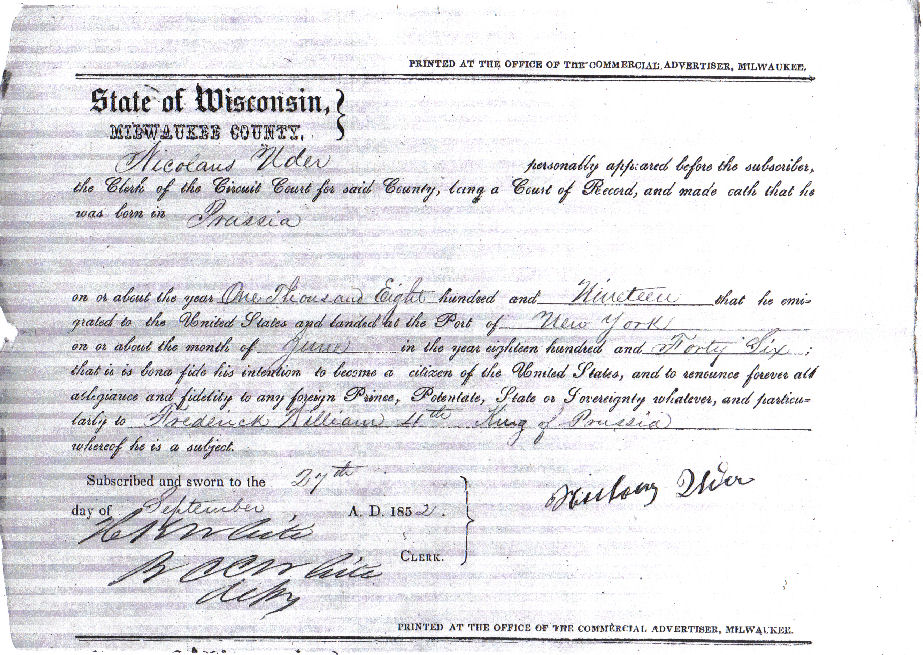 PRINTED AT THE OFFICE OF THE COMMERCIAL ADVERTISER, MILWAUKEE.
State of Wisconsin,
MILWAUKEE COUNTY.
Nicolaus Uder personally appeared before the subscriber,
the Clerk of the Circuit Court for said County, being a Court of Record, and made oath that he
was born in Prussia
on or about the year One Thousand Eight hundred and Nineteen that he emi-
grated to the United States and landed at the Port of New York
on or about the month of June in the year eighteen hundred and Forty Six ;
that it is bona fide his intention to become a citizen of the United States, and to renounce forever all
allegiance and fidelity to any foreign Prince, Potentate, State or Sovereignty whatever, and particu-
larly to Frederick William 4th King of Prussia
whereof he is a subject.
Subscribed and sworn to the 27th
Uder
day of September A. D. 1852.
White
CLERK.
White
PRINTED AT THE OFFICE OF THE COMMERCIAL ADVERTISER, MILWAUKEE.